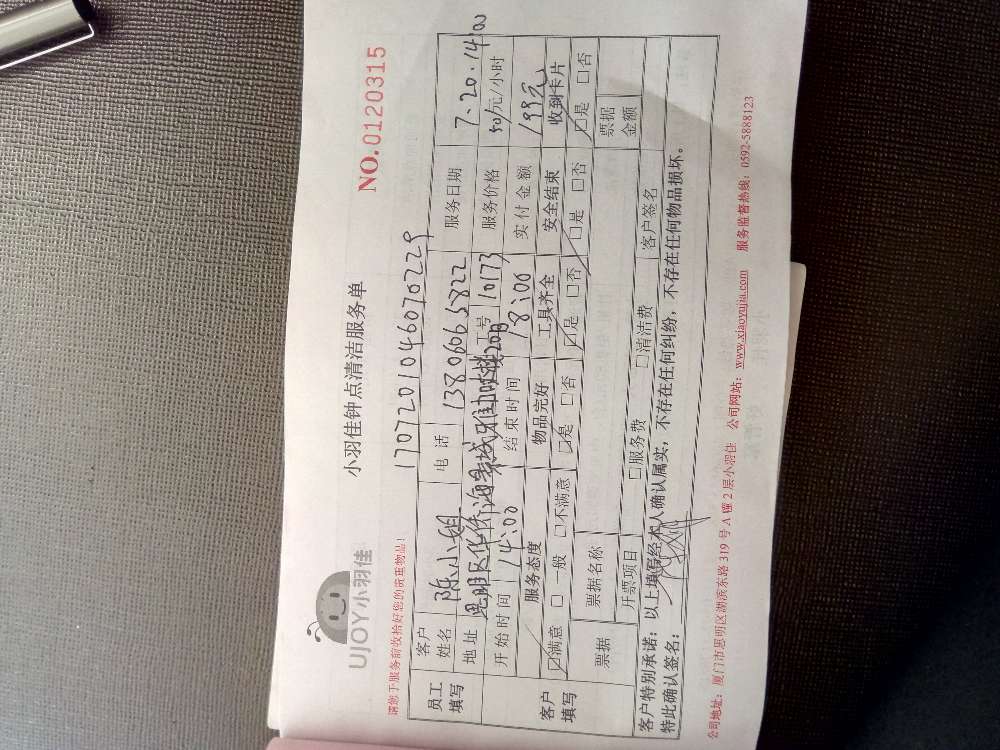 UJOY小羽佳
小羽佳钟点清洁服务单
NO.0120315
请您于服务前收拾好您的贵重物品!
1707201046070229
员工填写 客户姓名 陈小姐 电话 13806065822 服务日期 7.20.14:00
地址 工号 10173 服务价格 50/元/小时
开始时间 14:00 结束时间 18:00 实付金额 199元
客户填写 服务态度 物品完好 工具齐全 安全结束 收到卡片
☑满意 □一般 □不满意 ☑是 □否 ☑是 □否 ☑是 □否 ☑是 □否
票据 票据名称 票据金额
开票项目 □服务费 □清洁费 客户签名
客户特别承诺:以上填写经本人确认属实,不存在任何纠纷,不存在任何物品损坏。
特此确认签名:
公司地址:厦门市思明区湖滨东路319号A幢2层小羽佳 公司网站:www.xiaoyujia.com 服务监督热线:0592-5888123